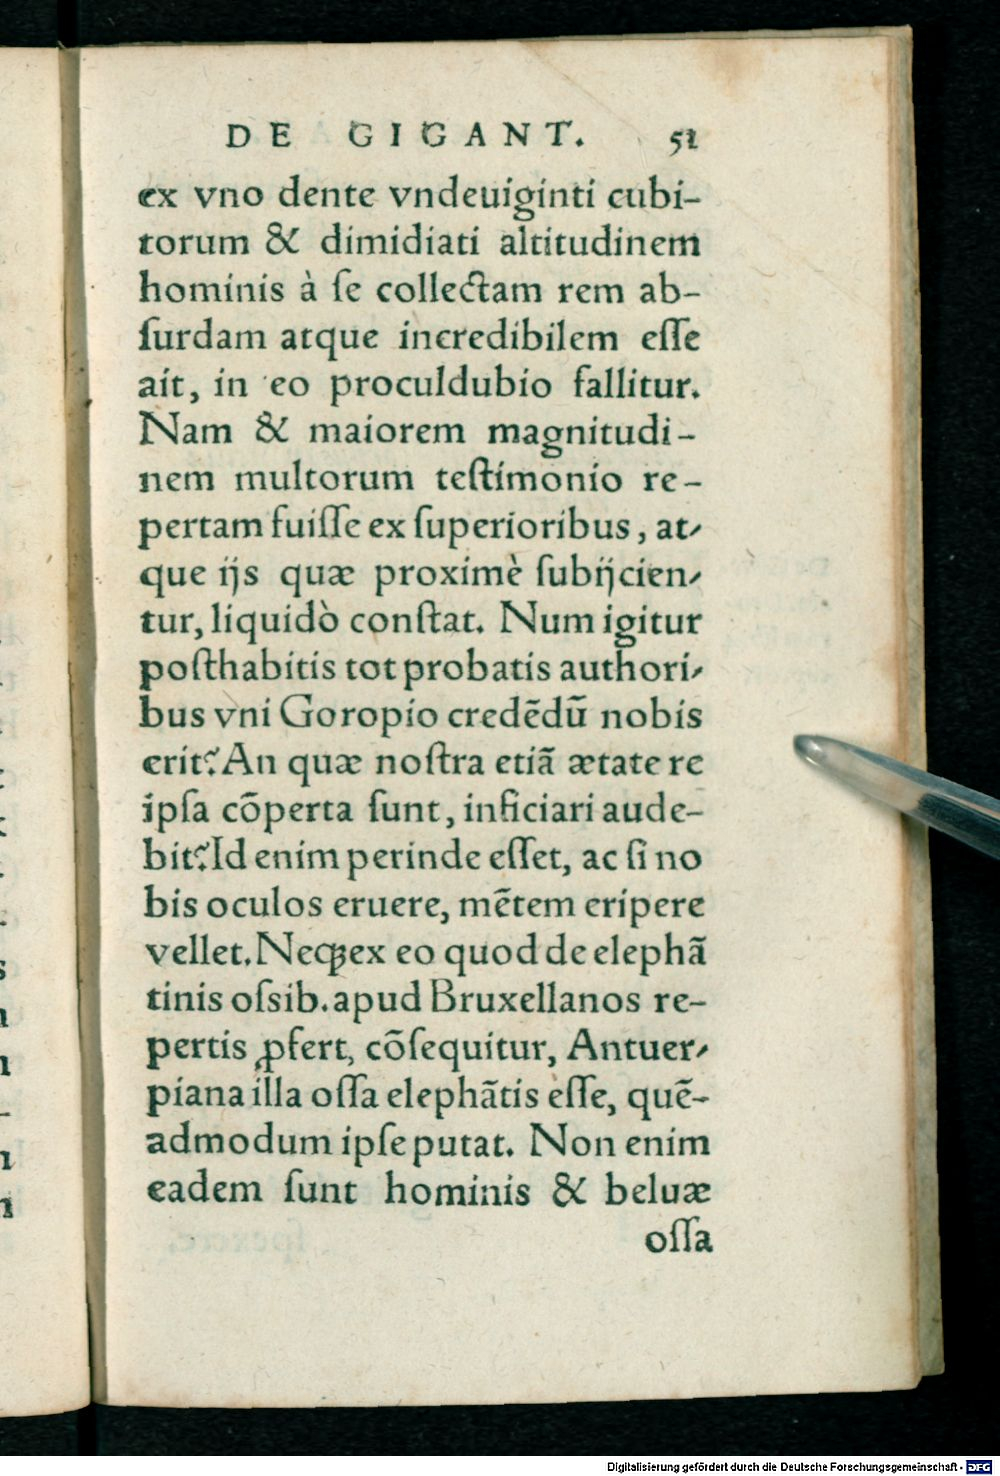 DE GIGANT. 51
ex vno dente vndeuiginti cubi-
torum & dimidiati altitudinem
hominis à ſe collectam rem ab-
ſurdam atque incredibilem eſſe
ait, in eo proculdubio fallitur.
Nam & maiorem magnitudi-
nem multorum teſtimonio re-
pertam fuiſſe ex ſuperioribus, at-
que ijs quæ proximè ſubijcien-
tur, liquidò conſtat. Num igitur
poſthabitis tot probatis authori-
bus vni Goropio credēdū nobis
erit? An quæ noſtra etiā ætate re
ipſa cōperta ſunt, inficiari aude-
bit? Id enim perinde eſſet, ac ſi no
bis oculos eruere, mētem eripere
vellet. Neqꝫ ex eo quod de elephā
tinis oſsib. apud Bruxellanos re-
pertis ꝓfert, cōſequitur, Antuer-
piana illa oſſa elephātis eſſe, quē-
admodum ipſe putat. Non enim
eadem ſunt hominis & beluæ
oſſa
Digitalisierung gefördert durch die Deutsche Forschungsgemeinschaft - DFG